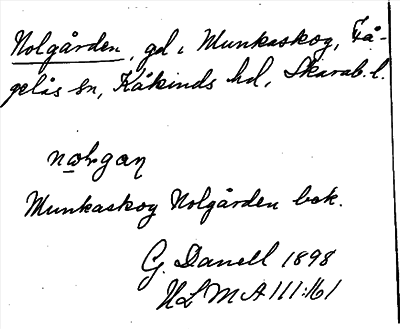 Nolgården, gd i Munkaskog, Få-
gelås sn, Kåkinds hd, Skarab. l.
Munkaskog Nolgården bek.
G. Danell 1898
ULMA 111:161